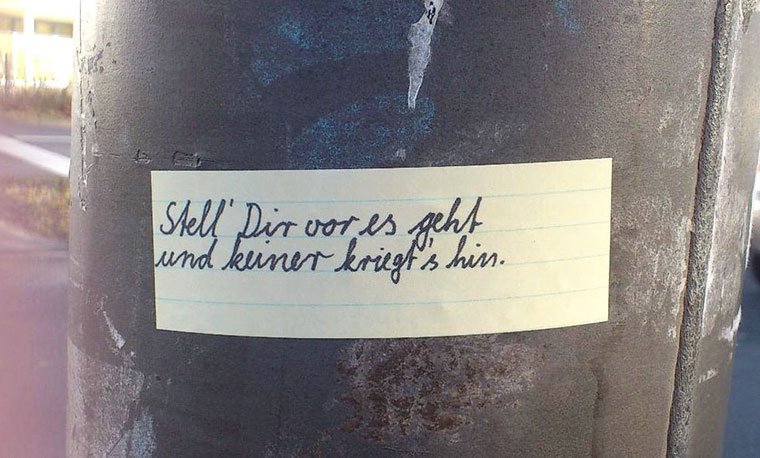 Stell' Dir vor es geht
und keiner kriegt's hin.